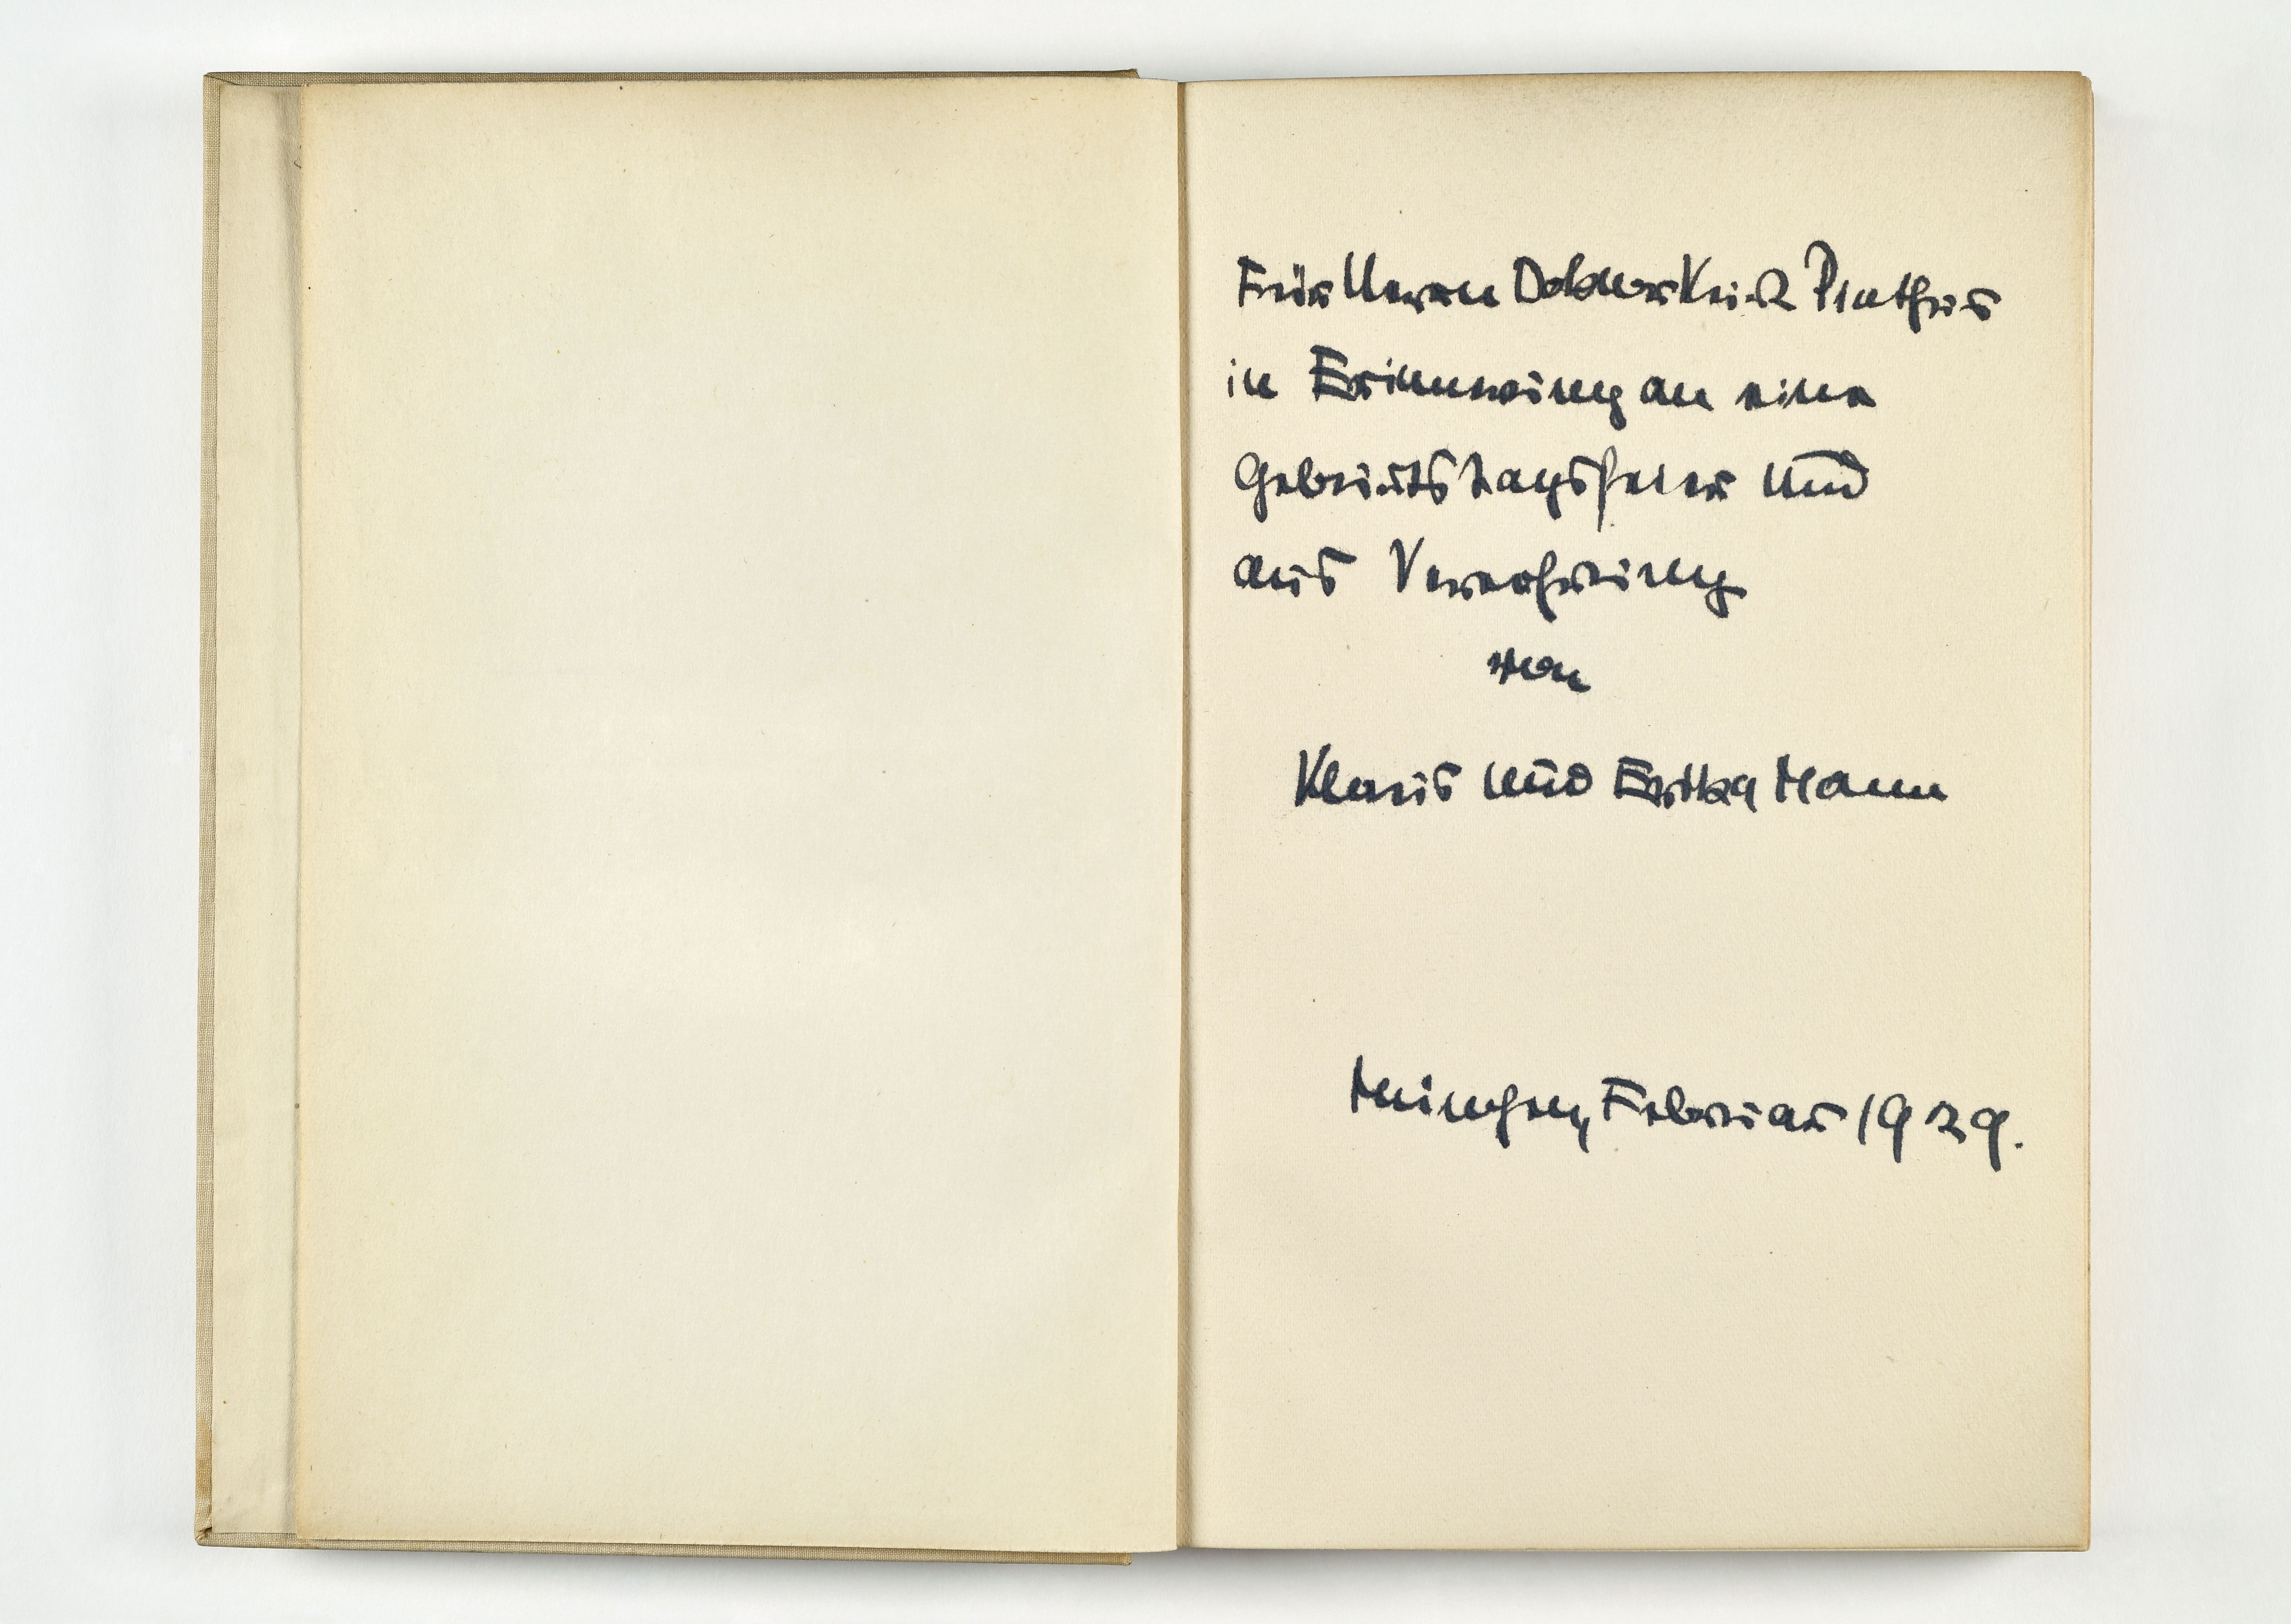 Für Herrn Doktor Kurt Pinthus
in Erinnerung an eine
Geburtstagsfeier und
aus Verehrung
von
Klaus und Erika Mann
München, Februar 1929.